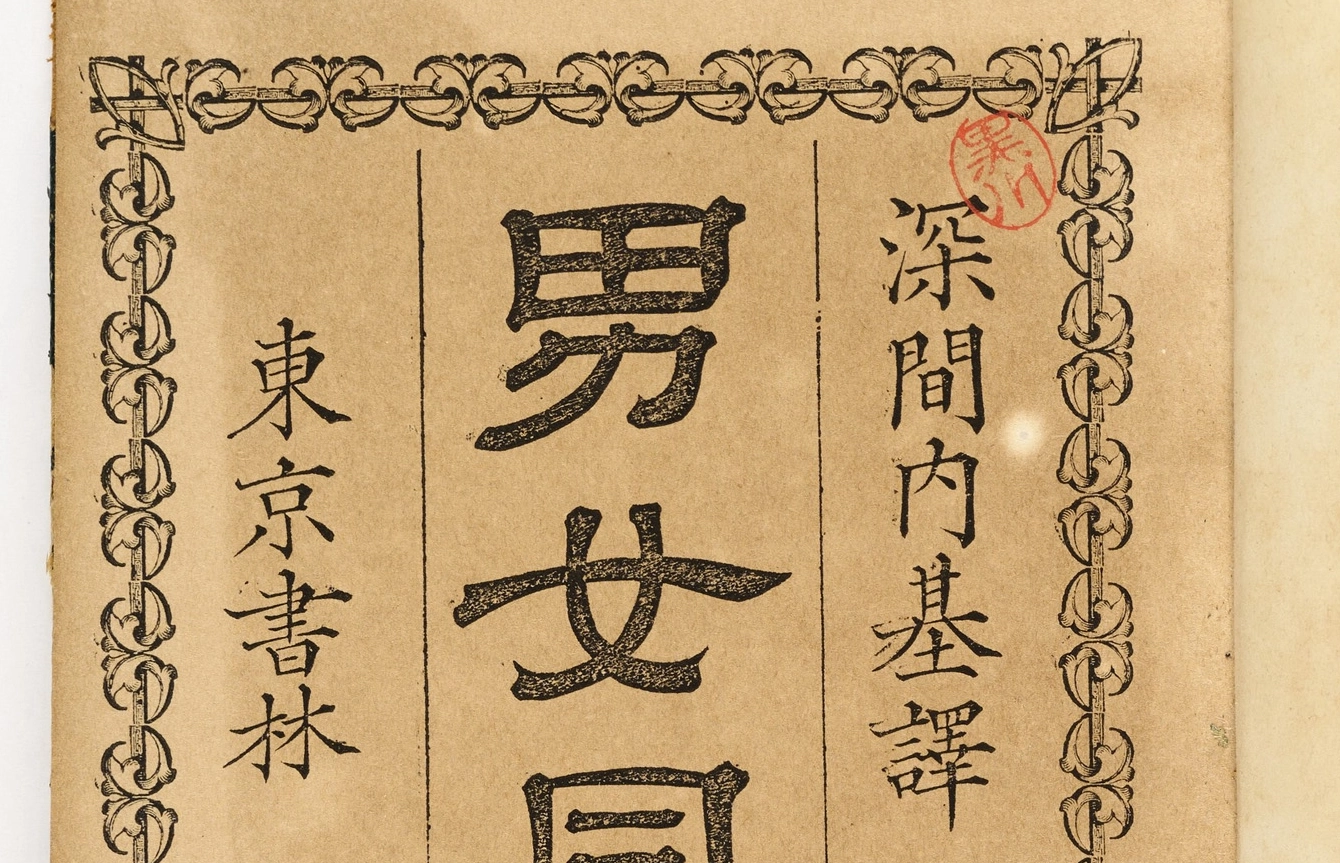 深間内基譯
男女同
東京書林